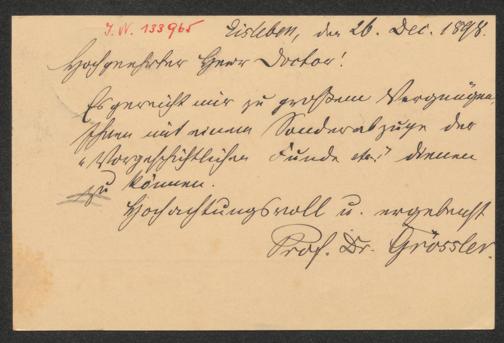 I. N. 133965
Eisleben, den 26. Dec. 1898.
Hochgeehrter Herr Doctor!
Es gereicht mir zu großem Vergnügen
Ihnen mit einem Sonderabzuge der
"Vorgeschichtlichen Funde etc." dienen
zu können.
Hochachtungsvoll u. ergebenst
Prof. Dr. Grössler.